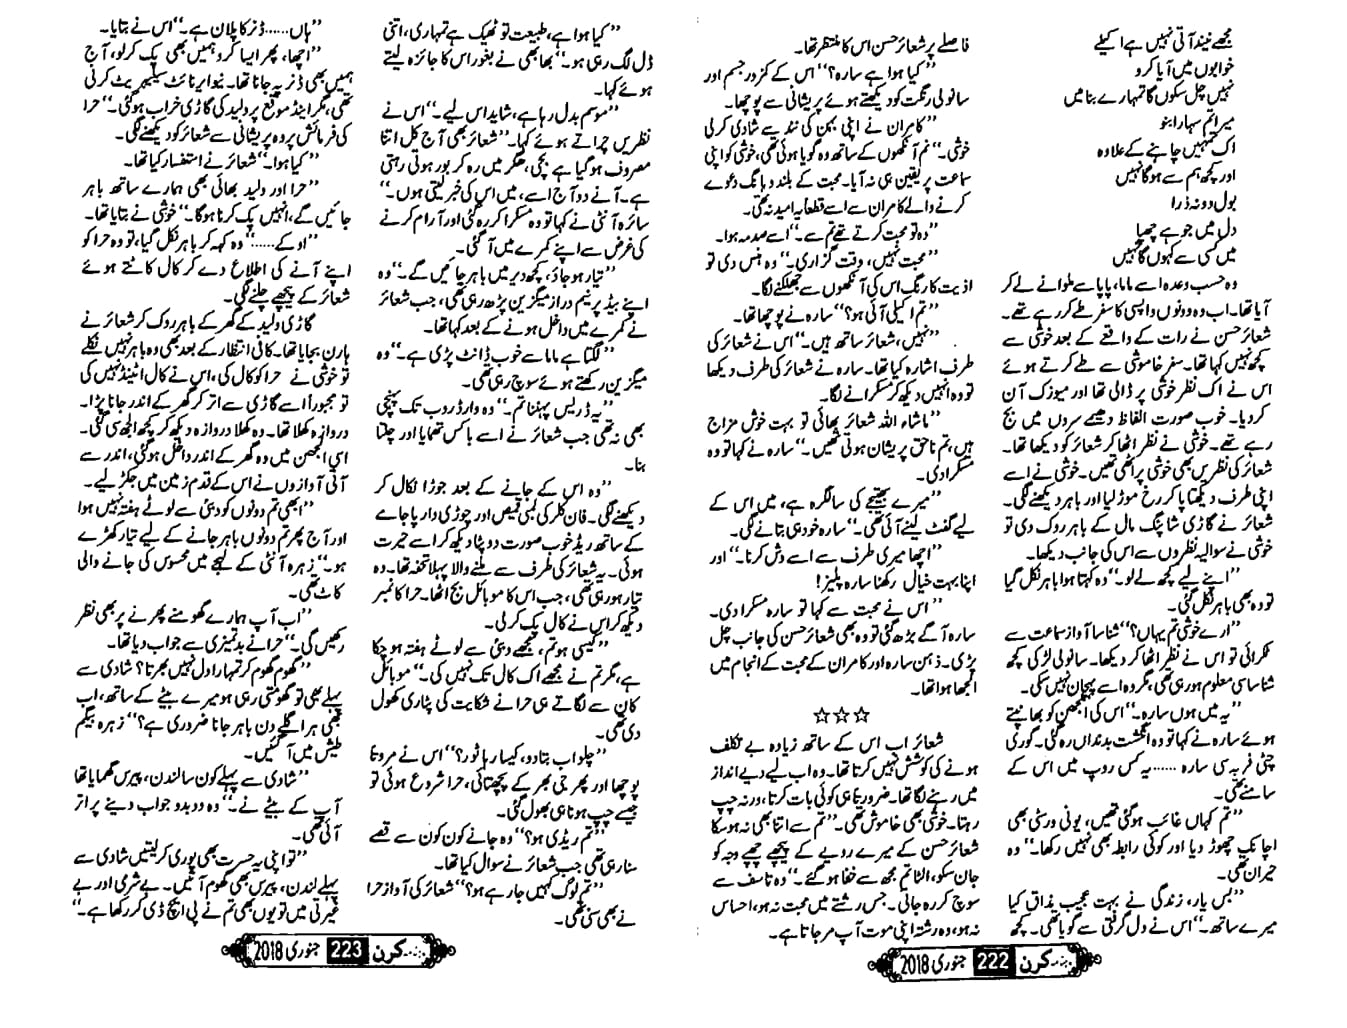 مجھے نیند آتی نہیں ہے اکیلے
خوابوں میں آیا کرو
نہیں چل سکوں گا تمہارے بنا میں
میرا تم سہارا بنو
اک تمہیں چاہنے کے علاوہ
اور کچھ ہم سے ہوگا نہیں
بول دو نہ ذرا
دل میں جو ہے چھپا
میں کسی سے کہوں گا نہیں
وہ حسب وعدہ اسے ماما، پاپا سے ملوانے لے کر
آیا تھا۔ اب وہ دونوں واپسی کا سفر طے کر رہے تھے۔
شعائر حسن نے رات کے واقعے کے بعد خوشی سے
کچھ نہیں کہا تھا۔ سفر خاموشی سے طے کرتے ہوئے
اس نے اک نظر خوشی پر ڈالی تھا اور میوزک آن
کردیا۔ خوب صورت الفاظ دھیمے سروں میں بج
رہے تھے۔ خوشی نے نظر اٹھا کر شعائر کو دیکھا تھا۔
شعائر کی نظریں بھی خوشی پر اٹھی تھیں۔ خوشی نے اسے
اپنی طرف دیکھتا پا کر رخ موڑ لیا اور باہر دیکھنے لگی۔
شعائر نے گاڑی شاپنگ مال کے باہر روک دی تو
خوشی نے سوالیہ نظروں سے اس کی جانب دیکھا۔
”اپنے لیے کچھ لے لو۔“ وہ کہتا ہوا باہر نکل گیا
تو وہ بھی باہر نکل گئی۔
”ارے خوشی تم یہاں؟“ شناسا آواز سماعت سے
ٹکرائی تو اس نے نظر اٹھا کر دیکھا۔ سانولی لڑکی کچھ
شناسا سی معلوم ہو رہی تھی، مگر وہ اسے پہچان نہیں سکی۔
”یہ میں ہوں سارہ۔“ اس کی الجھن کو بھانپتے
ہوئے سارہ نے کہا تو وہ انگشت بدنداں رہ گئی۔ گوری
چٹی فربہ سی سارہ ...... یہ کس روپ میں اس کے
سامنے تھی۔
”تم کہاں غائب ہوگئی تھیں، یونی ورسٹی بھی
اچانک چھوڑ دیا اور کوئی رابطہ بھی نہیں رکھا۔“ وہ
حیران تھی۔
”بس یار، زندگی نے بہت عجیب مذاق کیا
میرے ساتھ۔“ اس نے دل گرفتی سے گویا تھی۔ کچھ
فاصلے پر شعائر حسن اس کا منتظر تھا۔
”کیا ہوا ہے سارہ؟“ اس کے کمزور جسم اور
سانولی رنگت کو دیکھتے ہوئے پریشانی سے پوچھا۔
”کامران نے اپنی بہن کی نند سے شادی کرلی
خوشی۔“ نم آنکھوں کے ساتھ وہ گویا ہوئی تھی، خوشی کو اپنی
سماعت پر یقین ہی نہ آیا۔ محبت کے بلند و بانگ دعوے
کرنے والے کامران سے اسے قطعاً یہ امید نہ تھی۔
”وہ تو محبت کرتے تھے تم سے۔“ اسے صدمہ ہوا۔
”محبت نہیں، وقت گزاری۔“ وہ ہنس دی تو
اذیت کا رنگ اس کی آنکھوں سے جھلکنے لگا۔
”تم اکیلی آئی ہو؟“ سارہ نے پوچھا تھا۔
”نہیں، شعائر ساتھ ہیں۔“ اس نے شعائر کی
طرف اشارہ کیا تھا۔ سارہ نے شعائر کی طرف دیکھا
تو وہ انہیں دیکھ کر مسکرانے لگا۔
”ماشاء اللہ شعائر بھائی تو بہت خوش مزاج
ہیں، تم ناحق پریشان ہوتی تھیں۔“ سارہ نے کہا تو وہ
مسکرا دی۔
”میرے بھتیجے کی سالگرہ ہے، میں اس کے
لیے گفٹ لینے آئی تھی۔“ سارہ خود ہی بتانے لگی۔
”اچھا میری طرف سے اسے وش کرنا۔“ اور
اپنا بہت خیال رکھنا سارہ پلیز!
”اس نے محبت سے کہا تو سارہ مسکرا دی۔
سارہ آگے بڑھ گئی تو وہ بھی شعائر حسن کی جانب چل
پڑی۔ ذہن سارہ اور کامران کے محبت کے انجام میں
الجھا ہوا تھا۔
☆☆☆
شعائر اب اس کے ساتھ زیادہ بے تکلف
ہونے کی کوشش نہیں کرتا تھا۔ وہ اب لیے دیے انداز
میں رہنے لگا تھا۔ ضرورتا ہی کوئی بات کرتا، ورنہ چپ
رہتا۔ خوشی بھی خاموش تھی۔ ”تم سے اتنا بھی نہ ہو سکا
شعائر حسن کے میرے رویے کے پیچھے چھپے وجہ کو
جان سکو، الٹا تم مجھ سے خفا ہو گئے۔“ وہ تاسف سے
سوچ کر رہ جاتی۔ جس رشتے میں محبت نہ ہو، احساس
نہ ہو، وہ رشتہ اپنی موت آپ مر جاتا ہے۔
ماہنامہ کرن 222 جنوری 2018
”کیا ہوا ہے، طبیعت تو ٹھیک ہے تمہاری، اتنی
ڈل لگ رہی ہو۔“ بھابھی نے بغور اس کا جائزہ لیتے
ہوئے کہا۔
”موسم بدل رہا ہے، شاید اس لیے۔“ اس نے
نظریں چراتے ہوئے کہا۔ ”شعائر بھی آج کل اتنا
مصروف ہو گیا ہے بچی، گھر میں رہ کر بور ہوتی رہتی
ہے۔ آنے دو آج اسے، میں اس کی خبر لیتی ہوں۔“
سائرہ آنٹی نے کہا تو وہ مسکرا کر رہ گئی اور آرام کرنے
کی غرض سے اپنے کمرے میں آگئی۔
”تیار ہو جاؤ، کچھ دیر میں باہر جائیں گے۔“ وہ
اپنے بیڈ پر نیم دراز میگزین پڑھ رہی تھی، جب شعائر
نے کمرے میں داخل ہونے کے بعد کہا تھا۔
”لگتا ہے ماما سے خوب ڈانٹ پڑی ہے۔“ وہ
میگزین رکھتے ہوئے سوچ رہی تھی۔
”یہ ڈریس پہننا تم۔“ وہ وارڈ روب تک پہنچی
بھی نہ تھی جب شعائر نے اسے باکس تھمایا اور چلتا
بنا۔
”وہ اس کے جانے کے بعد جوڑا نکال کر
دیکھنے لگی۔ فان کلر کی لمبی قمیض اور چوڑی دار پاجامے
کے ساتھ ریڈ خوب صورت دوپٹا دیکھ کر اسے حیرت
ہوئی۔ یہ شعائر کی طرف سے ملنے والا پہلا تحفہ تھا۔ وہ
تیار ہو رہی تھی، جب اس کا موبائل بج اٹھا۔ حرا کا نمبر
دیکھ کر اس نے کال پک کرلی۔
”کیسی ہو تم، مجھے دبئی سے لوٹے ہفتہ ہو چکا
ہے، مگر تم نے مجھے اک کال تک نہیں کی۔“ موبائل
کان سے لگاتے ہی حرا نے شکایت کی پٹاری کھول
دی تھی۔
”چلو اب بتا دو، کیسا رہا ٹور؟“ اس نے مروتا
پوچھا اور پھر جی بھر کے پچھتائی، حرا شروع ہوئی تو
جیسے چپ ہونا ہی بھول گئی۔
”تم ریڈی ہو؟“ وہ جانے کون کون سے قصے
سنا رہی تھی جب شعائر نے سوال کیا تھا۔
”تم لوگ کہیں جا رہے ہو؟“ شعائر کی آواز حرا
نے بھی سنی تھی۔
”ہاں...... ڈنر کا پلان ہے۔“ اس نے بتایا۔
”اچھا، پھر ایسا کرو ہمیں بھی پک کرلو، آج
ہمیں بھی ڈنر پہ جانا تھا۔ نیو ایر نائٹ سیلیبریٹ کرنی
تھی، مگر اینڈ موقع پر ولید کی گاڑی خراب ہوگئی۔“ حرا
کی فرمائش پر وہ پریشانی سے شعائر کو دیکھنے لگی۔
”کیا ہوا۔“ شعائر نے استفسار کیا تھا۔
”حرا اور ولید بھائی بھی ہمارے ساتھ باہر
جائیں گے، انہیں پک کرنا ہوگا۔“ خوشی نے بتایا تھا۔
”اوکے......“ وہ کہہ کر باہر نکل گیا، تو وہ حرا کو
اپنے آنے کی اطلاع دے کر کال کاٹتے ہوئے
شعائر کے پیچھے چلنے لگی۔
گاڑی ولید کے گھر کے باہر روک کر شعائر نے
ہارن بجایا تھا۔ کافی انتظار کے بعد بھی وہ باہر نہیں نکلے
تو خوشی نے حرا کو کال کی، اس نے کال اٹینڈ نہیں کی
تو مجبوراً اسے گاڑی سے اتر کر گھر کے اندر جانا پڑا۔
دروازہ کھلا تھا۔ وہ کھلا دروازہ دیکھ کر کچھ الجھ سی گئی۔
اسی الجھن میں وہ گھر کے اندر داخل ہو گئی، اندر سے
آتی آوازوں نے اس کے قدم زمین میں جکڑ لیے۔
”ابھی تم دونوں کو دبئی سے لوٹے ہفتہ نہیں ہوا
اور آج پھر تم دونوں باہر جانے کے لیے تیار کھڑے
ہو۔“ زہرہ آنٹی کے لہجے میں محسوس کی جانے والی
کاٹ تھی۔
”اب آپ ہمارے گھومنے پھرنے پر بھی نظر
رکھیں گی۔“ حرا نے بدتمیزی سے جواب دیا تھا۔
”گھوم گھوم کر تمہارا دل نہیں بھرتا؟ شادی سے
پہلے بھی تو گھومتی رہی ہو میرے بیٹے کے ساتھ، اب
بھی ہر اگلے دن باہر جانا ضروری ہے؟“ زہرہ بیگم
طیش میں آگئیں۔
”شادی سے پہلے کون سا لندن، پیرس گھمایا تھا
آپ کے بیٹے نے۔“ وہ دوبدو جواب دینے پر اتر
آئی تھی۔
”تو اپنی یہ حسرت بھی پوری کر لیتیں شادی سے
پہلے لندن، پیرس بھی گھوم آتیں۔ بے شرمی اور بے
غیرتی میں تو یوں بھی تم نے پی ایچ ڈی کر رکھا ہے۔“
ماہنامہ کرن 223 جنوری 2018